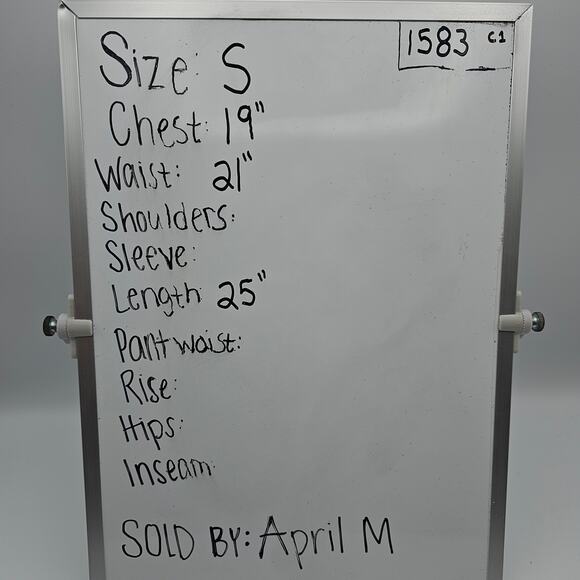 1583 C1
Size: S
Chest: 19"
Waist: 21"
Shoulders:
Sleeve:
Length: 25"
Pant waist:
Rise:
Hips:
Inseam:
SOLD BY: April M